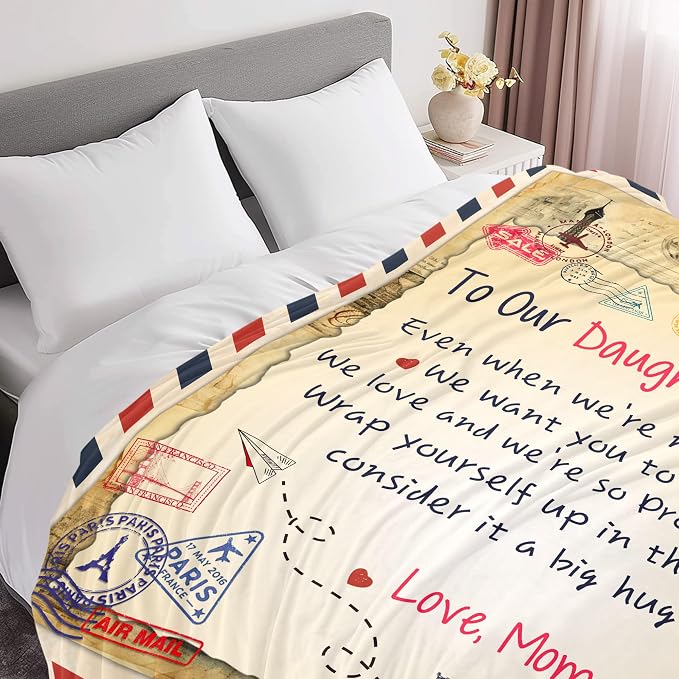 SALE
LONDON
To Our Daugh
Even when we're n
We want you to
We love and we're so pro
Wrap yourself up in th
consider it a big hug
Love, Mom
SAN FRANCISCO
SAN FRANCISCO
PARIS PARIS PARIS PARIS
17 MAY 2016
PARIS
FRANCE
AIR MAIL